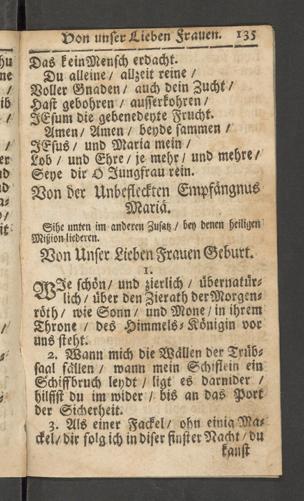 Von unser Lieben Frauen. 135
Das kein Mensch erdacht.
Du alleine / allzeit reine /
Voller Gnaden / auch dein Zucht /
Hast gebohren / ausserkohren /
JEsum die gebenedeyte Frucht.
Amen / Amen / beyde sammen /
JEsus / und Maria mein /
Lob / und Ehre / je mehr / und mehre /
Seye dir O Jungfrau rein.
Von der Unbefleckten Empfängnus
Mariä.
Sihe unten im anderen Zusatz / bey denen heiligen
Mißion-liederen.
Von Unser Lieben Frauen Geburt.
1.
WIe schön / und zierlich / übernatür-
lich / über den Zierath der Morgen-
röth / wie Sonn / und Mone / in ihrem
Throne / des Himmels-Königin vor
uns steht.
2. Wann mich die Wällen der Trüb-
saal fällen / wann mein Schiflein ein
Schiffbruch leydt / ligt es darnider /
hilffst du im wider / bis an das Port
der Sicherheit.
3. Als einer Fackel / ohn einig Ma-
ckel / dir folg ich in diser finster Nacht / du
kanst